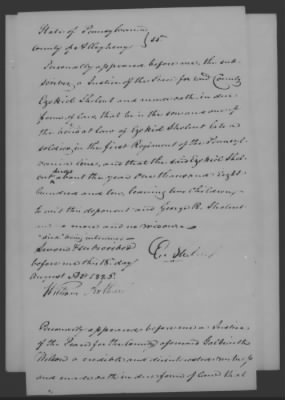 State of Pennsylvania
County of Allegheny } SS
Personally appeared before me, the sub-
scriber, a Justice of the Peace for said County
Ezekiel Sholent and made oath in due
form of Law that he is the son and one of
the heirs at law of Ezekiel Sholent late a
soldier in the first Regiment of the Pennsyl-
vania line, and that the said Ezekiel Sho-
lent died about the year One thousand eight
hundred and two, leaving two Children,
to wit this deponent and George R. Sholent
and no more
"died" being interlined
Sworn & subscribed
before me this 18 day
August AD 1825.
William
Personally appeared before me a Justice
of the Peace for the County aforesaid Galbraith
Wilson a credible and disinterested witness
and made oath in due form of Law that